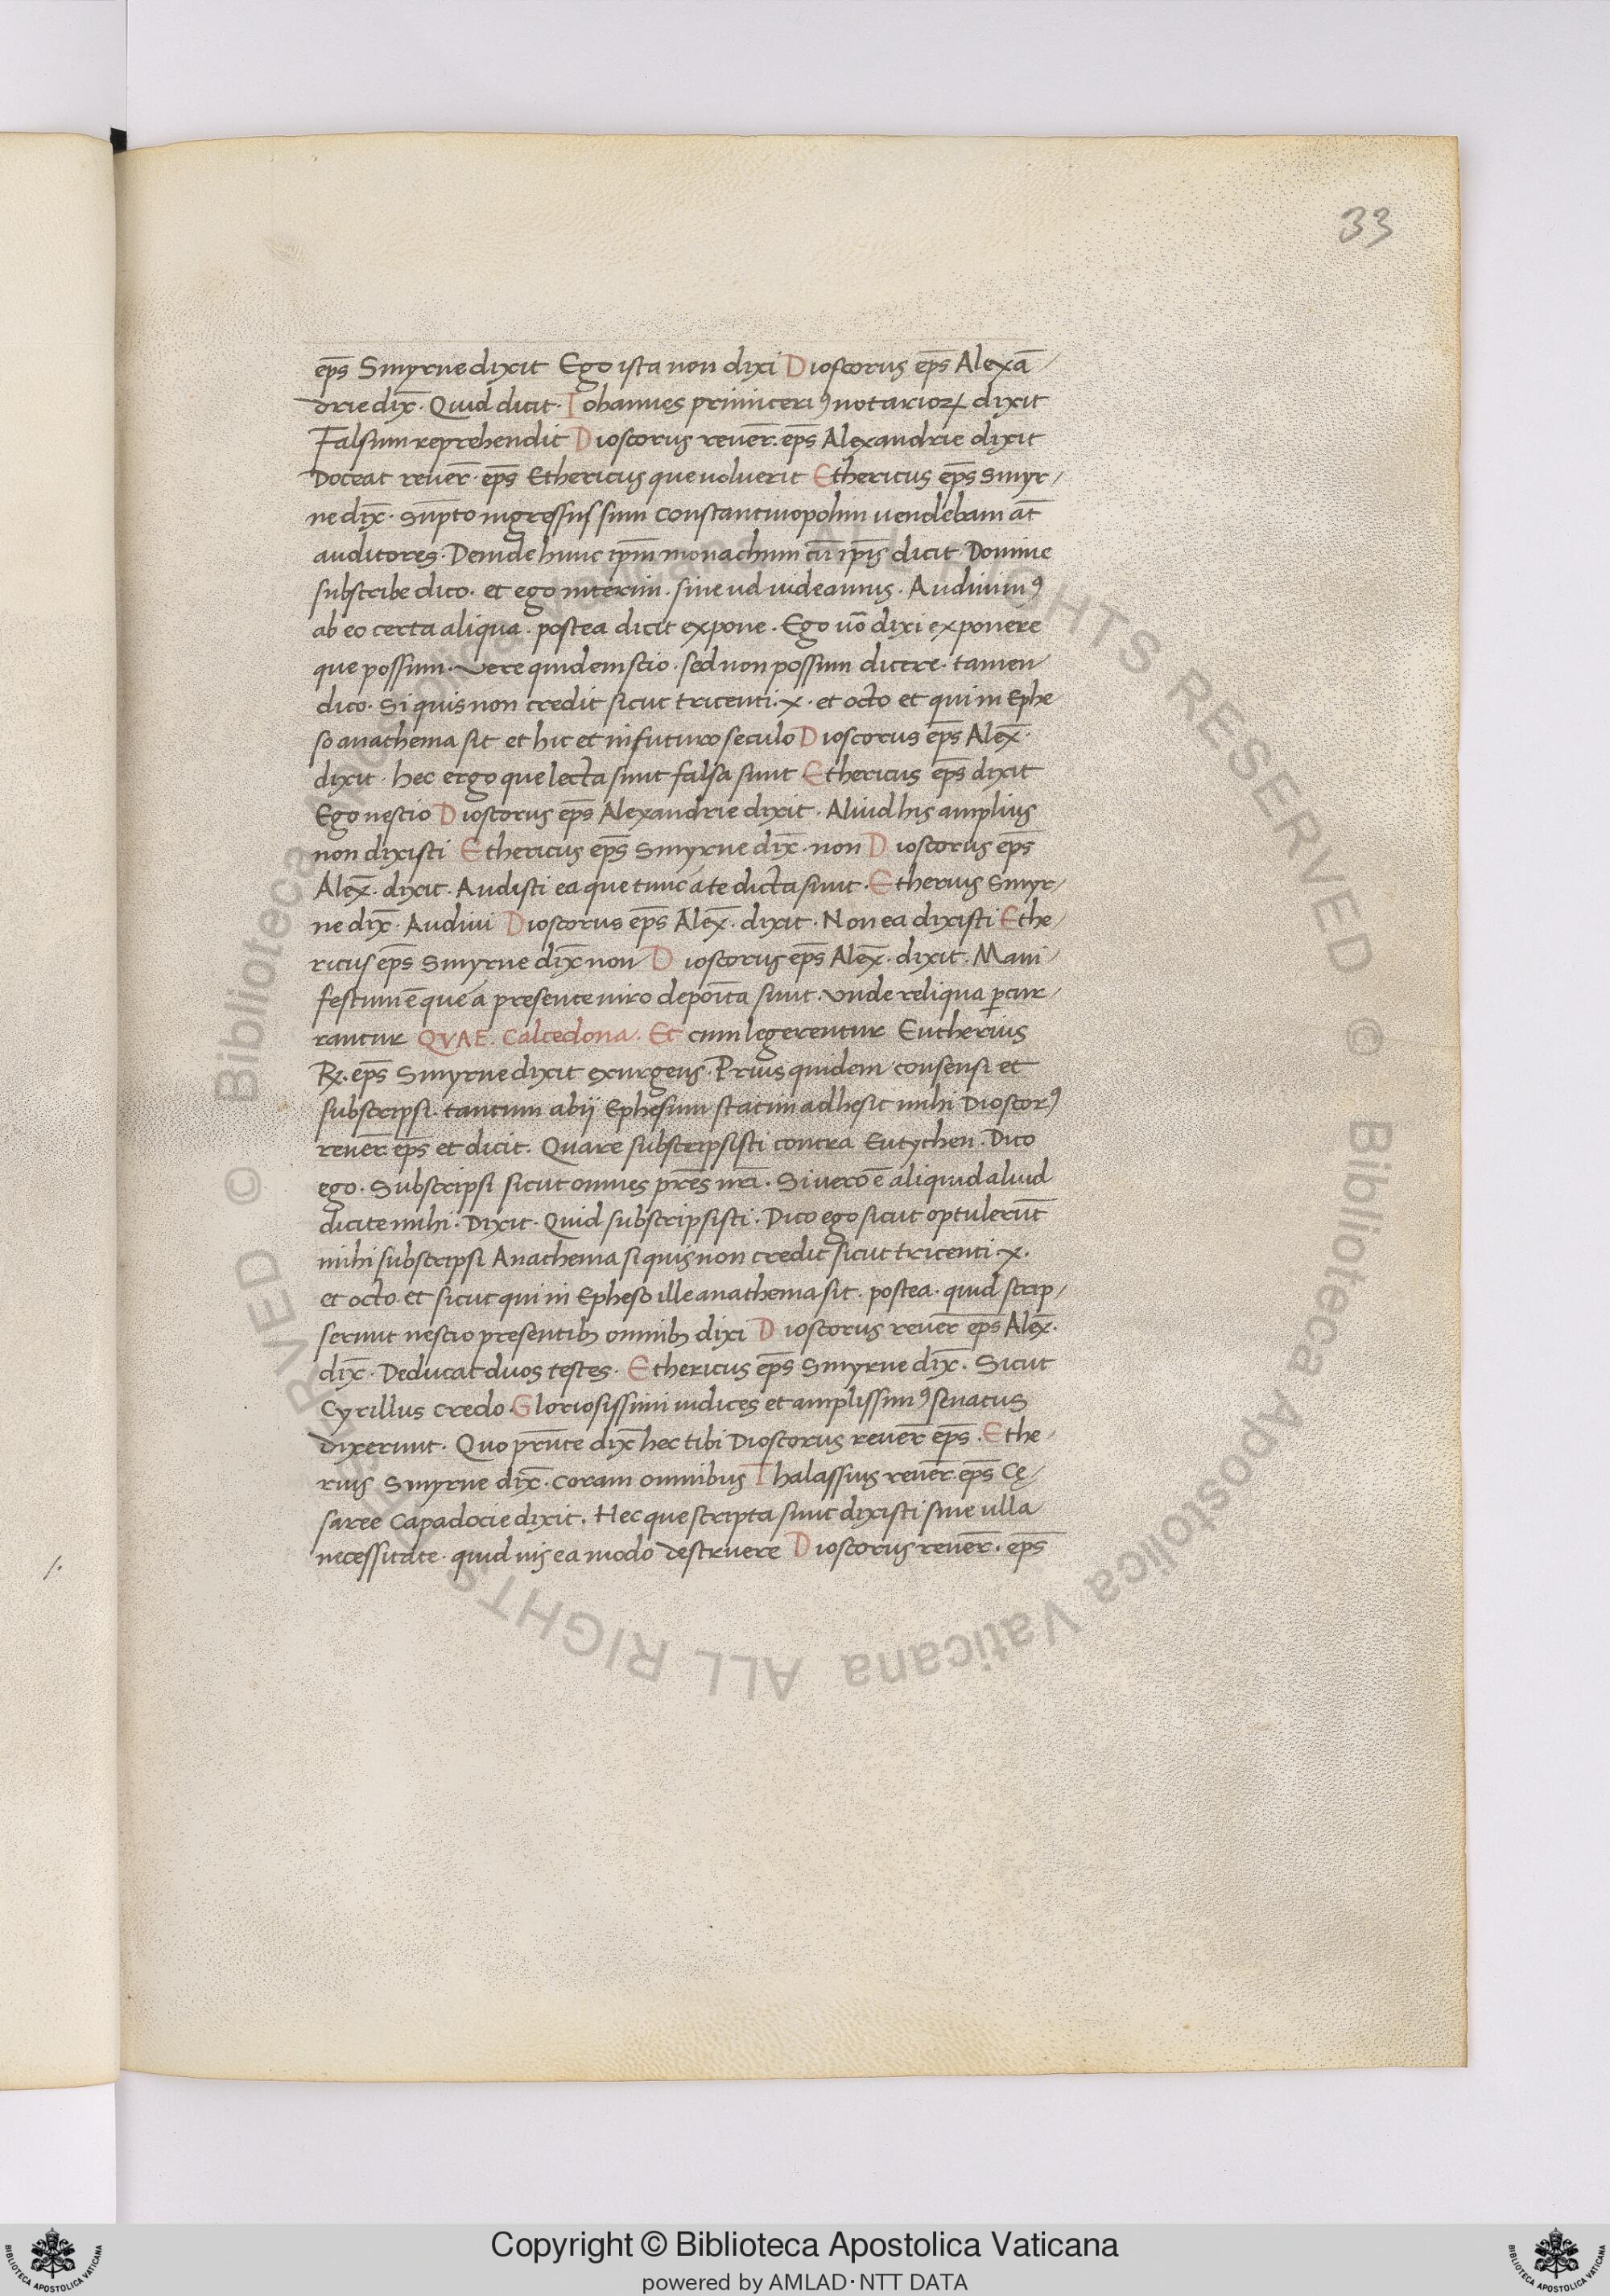 33
ep̄s Smyrne dixit Ego ista non dixi Dioscorus ep̄s Alexā-
drie dix̄. Quid dicit. Iohannes primiceriꝰ notarioꝝ dixit
Falsum reprehendit Dioscorus reuer̄. ep̄s Alexandrie dixit
Doceat reuer̄. ep̄s Ethericus que uoluerit Ethericus ep̄s Smyr-
ne dix̄. Sūpto ingressus sum Constantinopolim uendebam at̄
auditores. Deinde hunc ip̄m monachum cū ip̄is dicit Domine
subscribe dico. et ego interim. sine ud uideamus. Audiuimꝰ
ab eo certa aliqua. postea dicit expone. Ego uō dixi exponere
que possum. Vere quidem scio. sed non possum dicere. tamen
dico. Si quis non credit sicut tricenti. x. et octo et qui in Ephe-
so anathema sit et hic et in futuro seculo Dioscorus ep̄s Alex̄.
dixit. hec ergo que lecta sunt falsa sunt Ethericus ep̄s dixit
Ego nescio Dioscorus ep̄s Alexandrie dixit. Aliud his amplius
non dixisti Ethericus ep̄s Smyrne dix̄. non Dioscorus ep̄s
Alex̄. dixit. Audisti ea que tunc a te dicta sunt. Etherius Smyr-
ne dix̄. Audiui Dioscorus ep̄s Alex̄. dixit. Non ea dixisti Ethe-
ricus ep̄s Smyrne dix̄ non Dioscorus ep̄s Alex̄. dixit. Mani-
festum ē que a presente uiro deposita sunt. Vnde reliqua ꝑcur-
rantur QVAE. Calcedona. Et cum legerentur Eutherius
R. ep̄s Smyrne dixit exurgens. Prius quidem consensi et
subscripsi. tantum abij Ephesum statim adhesit mihi Dioscorꝰ
reuer̄. ep̄s et dicit. Quare subscripsisti contra Eutychen. Dico
ego. Subscripsi sicut omnes pr̄es nr̄i. Si uero ē aliquid aliud
dicite mihi. Dixit. Quid subscripsisti. Dico ego sicut optulerūt
mihi subscripsi Anathema si quis non credit sicut tricenti. x.
et octo. et sicut qui in Epheso ille anathema sit. postea. quid scrip-
serunt nescio presentibꝫ omnibꝫ dixi Dioscorus reuer̄ ep̄s Alex̄.
dix̄. Deducat duos testes. Ethericus ep̄s Smyrne dix̄. Sicut
Cyrillus credo. Gloriosissimi iudices et amplissimꝰ senatus
dixerunt. Quo pr̄nte dix̄ hec tibi Dioscorus reuer̄ ep̄s. Ethe-
rius Smyrne dix̄. coram omnibus Thalassius reuer̄. ep̄s Cę-
saree Capadocie dixit. Hec que scripta sunt dixisti sine ulla
necessitate. quid uis ea modo destruere Dioscorus reuer̄. ep̄s
© Biblioteca Apostolica Vaticana ALL RIGHTS RESERVED
© Biblioteca Apostolica Vaticana ALL RIGHTS RESERVED
Copyright © Biblioteca Apostolica Vaticana
powered by AMLAD·NTT DATA
BIBLIOTECA APOSTOLICA VATICANA
BIBLIOTECA APOSTOLICA VATICANA